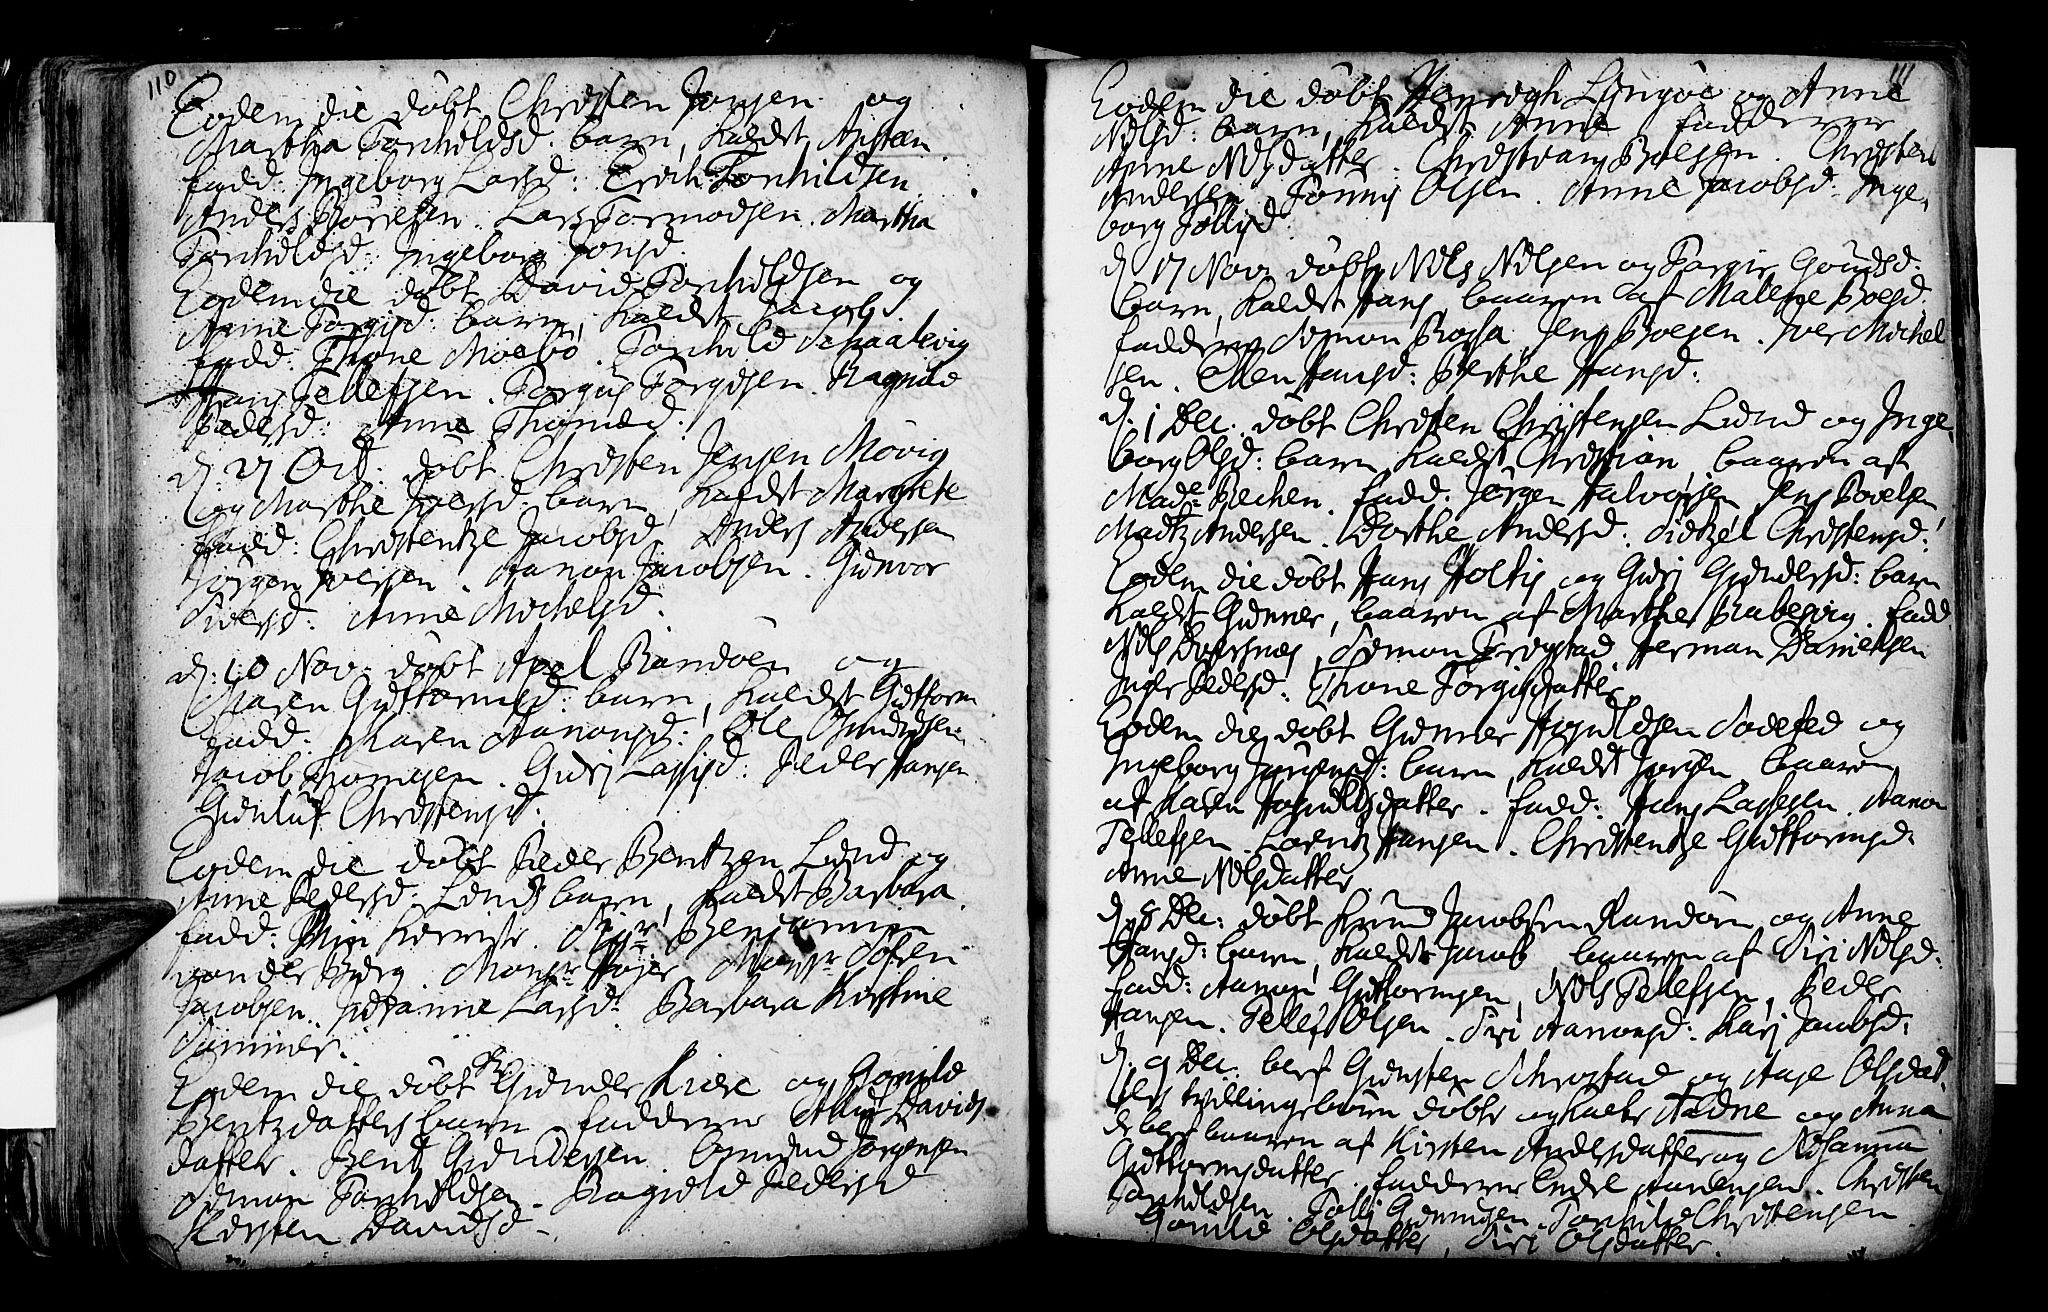 110
Eodem die døbt Christen Jensen og
Martha Torchildsd: barn, kaldt Aisten
fadd: Ingeborg Larsd: Erich Torchildsen
Anders Børresen. Lars Tormodsen. Martha
Torchildsd: Ingeborg Jonsd.
Eodem die døbt David Torchildsen og
Anne Torgisd: barn, kaldt Jacob.
fadd: Thone Moebø. Torchild Schaalevig
Hans Tellefsen. Torgius Torgisen. Ragnild
Pedersd: Anne Thomæd.
d 27 Oct: døbt Christen Jensen Møvig
og Marthe Iversd: barn, kaldt Margrete
fadd: Christentze Jacobsd. Anders Andersen
Jørgen Iversen. Aanon Jacobsen. Gunvor
Siversd: Anne Michelsd.
d: 10 Nov: døbt Axel Randøen og
Maren Guttormsd: barn, kaldt Guttorm
fadd: Karen Aanonsd: Ole
Jacob Thomesen. Guri Lassisd: Peder Hansen
Gunluf Christensd:
Eodem die døbt Peder Bentzen Lund og
Anne Pedersd: Lunds barn, kaldt Barbara.
fadd: Sigr Benjamin
von der Burg Monsr Høyer Monsr Søfren
Jacobsen. Susanne Larsd: Barbara Kirstine
Sommer.
Eodem die døbt Gunder Kire og Gonild
Bentzdatters barn fadderne Davids
datter. Bent Gundersen. Omund Jørgensen
Simon Torchildsen. Ragnild Pedersd
Kirsten Davidsd.
111
Eodem die døbt Henrich Lingøe og Anne
Nilsd: barn, kaldt Anne fadderne
Anne Nilsdatter. Christians Boesen. Christen
Andersen. Tønnis Olsen. Anne Jacobsd: Inge,
borg Tollisd.
d 17 Nov: døbt Nils Nilsen og Torgir Goudsd:
barn, kaldt Hans baaren af Malene Boesd.
fadderne Simon Rossa Jens Boesen. Iver Michel
sen. Ellen Hansd: Berthe Hansd:
d: 1 Dec: døbt Christen Christensen Lund og Inge,
borg Olsd: barn, kaldt Christian, baaren af
Made Bechen. fadd: Jørgen Halvorsen, Jens Povelsen
Madtz Andersen. Dorthe Andersd: Sidtzel Christensd:
Eodem die døbt Hans Holtis og Guri Gundersd: barn
kaldt Gunner, baaren af Marthe Rabevig. fadd
Nils Simon Trogstad Herman Danielsen
Inger Pedersd: Thone Torgisdatter.
Eodem die døbt Gunner Asguldsen Sodefed og
Ingeborg Jensd: barn, kaldt Jørgen, baaren
af Karen Asguldsdatter. fadd: Hans Lassesen. Aanon
Tellefsen. Lorentz Hansen. Christentze Guttormsd:
Anne Nilsdatter.
d 8 Dec: døbt Knud Jacobsen Randøen og Anne
Hansd: barn, kaldt Jacob, baaren af Siri Nilsd:
fadd: Aanon Guttormsen, Nils Tellefsen, Peder
Hansen. Tellef Olsen. Siri Aanonsd: Kari Jacobsd:
d: 9 Dec: bers Gunsten Schrostad og Aase Olsdat,
ters tvillingebørn døbte og kaldte Aadne og Anna
de bers baaren af Kirsten Andersdatter og Susanna
Guttormsdatter. fadderne Endre Christen
Torchildsen. Tolli Gunnersen. Torchild Christensen
Gonild Olsdatter, Siri Olsdatter.